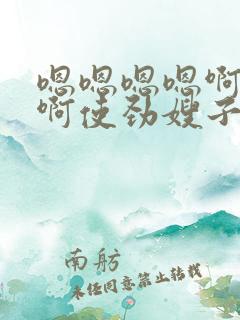 嗯嗯嗯嗯啊
啊使劲嫂子
南舫
未经同意禁止转载